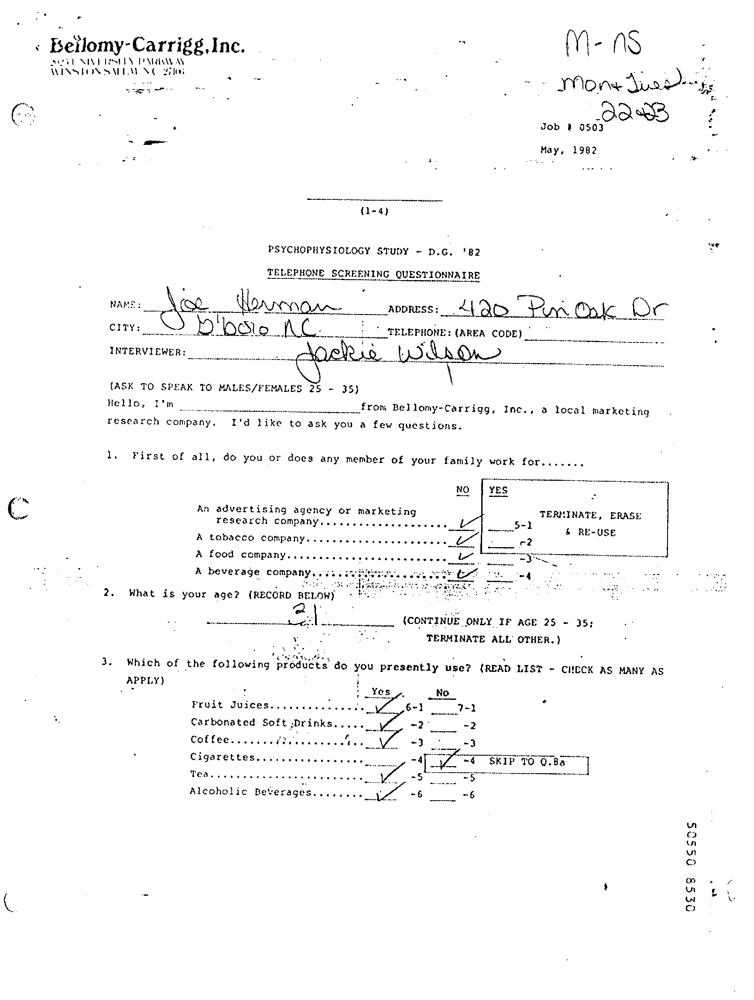 Bellomy-Carrigg, Inc.
WINSTON SALEM NC 27106
M-NS
Mon + Tues
22+23
Job # 0503
May, 1982
(1-4)
PSYCHOPHYSIOLOGY STUDY - D.G. '82
TELEPHONE SCREENING QUESTIONNAIRE
NAME: Joe Herman ADDRESS: 420 Pin Oak Dr
CITY: G'boro NC TELEPHONE: (AREA CODE)
INTERVIEWER: Jackie Wilson
(ASK TO SPEAK TO MALES/FEMALES 25 - 35)
Hello, I'm ____ from Bellomy-Carrigg, Inc., a local marketing
research company. I'd like to ask you a few questions.
1. First of all, do you or does any member of your family work for.......
NO YES
An advertising agency or marketing
research company..................... ✓ 5-1 TERMINATE, ERASE
& RE-USE
A tobacco company..................... ✓ -2
A food company........................ ✓ -3
A beverage company.................... ✓ -4
2. What is your age? (RECORD BELOW)
21 (CONTINUE ONLY IF AGE 25 - 35;
TERMINATE ALL OTHER.)
3. Which of the following products do you presently use? (READ LIST - CHECK AS MANY AS
APPLY)
Yes No
Fruit Juices.............. ✓ 6-1 7-1
Carbonated Soft Drinks..... ✓ -2 -2
Coffee..................... ✓ -3 -3
Cigarettes................ -4 ✓ -4 SKIP TO Q.8a
Tea....................... ✓ -5 -5
Alcoholic Beverages........ ✓ -6 -6
50550 8530